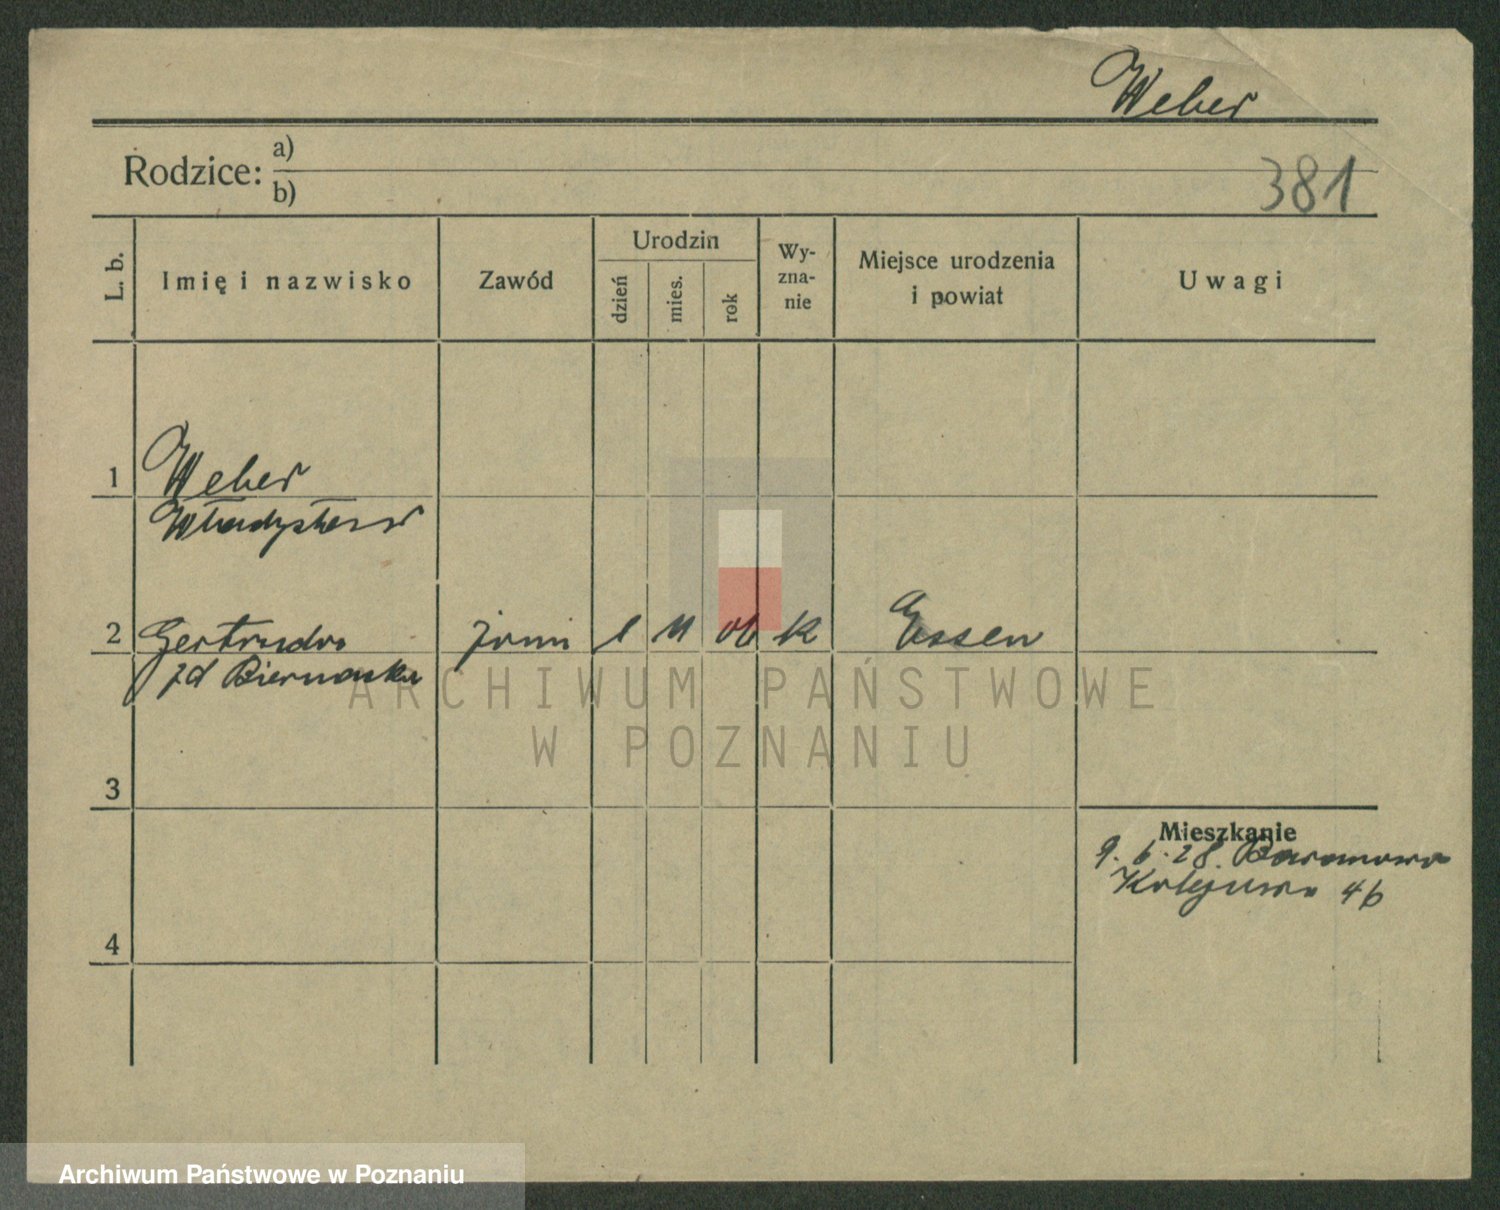 Weber
Rodzice: a)
b)
381
L. b.
Imię i nazwisko
Zawód
Urodzin
dzień
mies.
rok
Wy-
zna-
nie
Miejsce urodzenia
i powiat
Uwagi
1 Weber
Władysław
2 Gertruda 1 11 06 k Essen
zd Biernacka
ARCHIWUM PAŃSTWOWE
W POZNANIU
3
Mieszkanie
9. 6. 28. Baranowo
Kolejowa 46
4
Archiwum Państwowe w Poznaniu